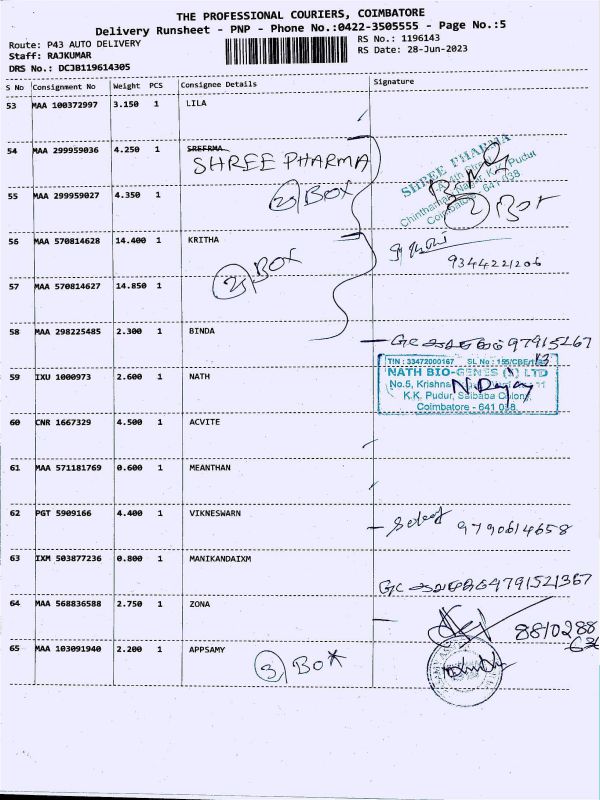 THE PROFESSIONAL COURIERS, COIMBATORE
Delivery Runsheet - PNP - Phone No.:0422-3505555 - Page No.:5
Route: P43 AUTO DELIVERY
RS No.: 1196143
Staff: RAJKUMAR
RS Date: 28-Jun-2023
DRS No.: DCJB119614305
S No Consignment No Weight PCS Consignee Details Signature
53 MAA 100372997 3.150 1 LILA
54 MAA 299959036 4.250 1 SREFRMA
SHREE PHARMA
SHREE PHARMA
K.K. Pudur
Coimbatore - 641 038
55 MAA 299959027 4.350 1
2 BOX
2 Box
56 MAA 570814628 14.400 1 KRITHA
9344221206
2 BOX
57 MAA 570814627 14.850 1
58 MAA 298225485 2.300 1 BINDA
TIN : 33472000167 SL No : 155/CBE/
NATH BIO-GENES (I) LTD
No.5, Krishna
K.K. Pudur, Saibaba Colony,
Coimbatore - 641 038
59 IXU 1000973 2.600 1 NATH
60 CNR 1667329 4.500 1 ACVITE
61 MAA 571181769 0.600 1 MEANTHAN
62 PGT 5909166 4.400 1 VIKNESWARN
9790614658
63 IXM 503877236 0.800 1 MANIKANDAIXM
64 MAA 568836588 2.750 1 ZONA
8810288
65 MAA 103091940 2.200 1 APPSAMY
3 BOX